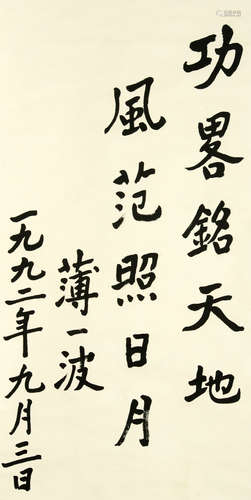 功畧銘天地
風范照日月
薄一波
一九九二年九月三日